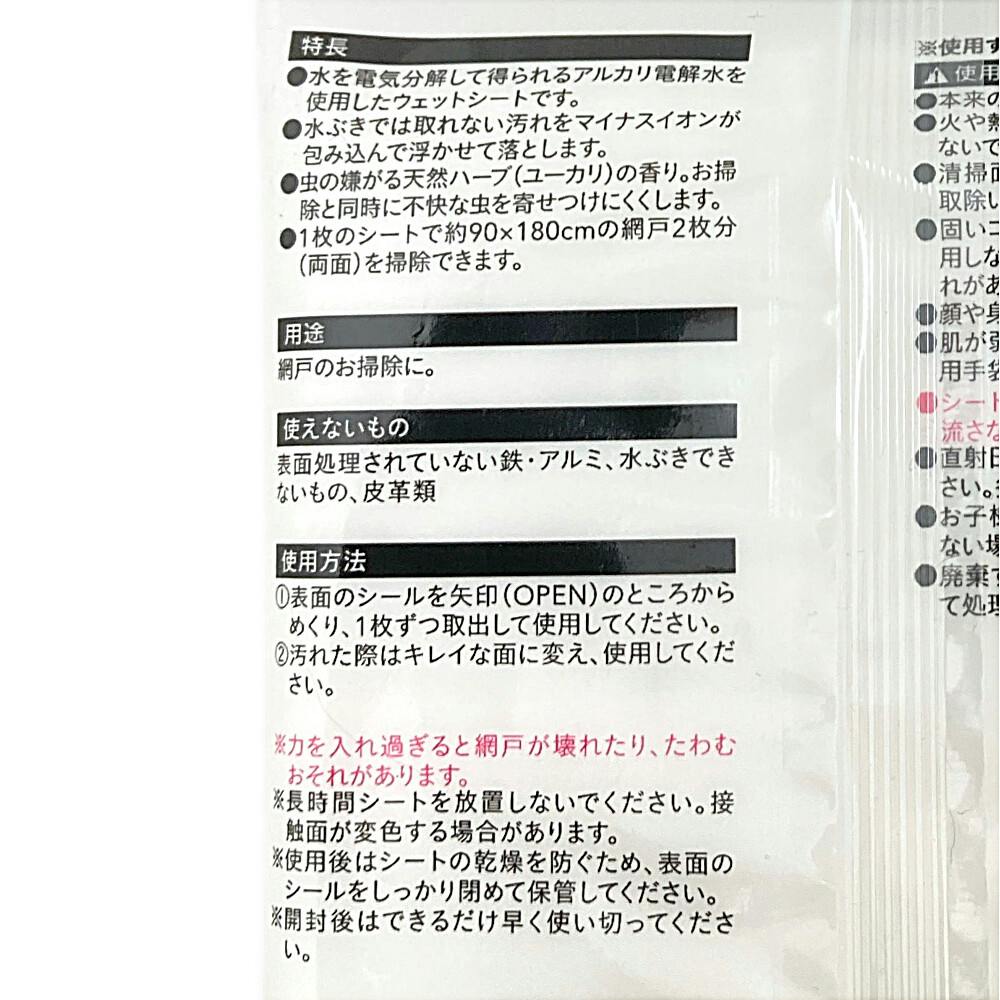 特長
●水を電気分解して得られるアルカリ電解水を
使用したウェットシートです。
●水ぶきでは取れない汚れをマイナスイオンが
包み込んで浮かせて落とします。
●虫の嫌がる天然ハーブ(ユーカリ)の香り。お掃
除と同時に不快な虫を寄せつけにくくします。
●1枚のシートで約90×180cmの網戸2枚分
(両面)を掃除できます。
用途
網戸のお掃除に。
使えないもの
表面処理されていない鉄・アルミ、水ぶきでき
ないもの、皮革類
使用方法
①表面のシールを矢印(OPEN)のところから
めくり、1枚ずつ取出して使用してください。
②汚れた際はキレイな面に変え、使用してくだ
さい。
※力を入れ過ぎると網戸が壊れたり、たわむ
おそれがあります。
※長時間シートを放置しないでください。接
触面が変色する場合があります。
※使用後はシートの乾燥を防ぐため、表面の
シールをしっかり閉めて保管してください。
※開封後はできるだけ早く使い切ってくださ
い。
※使用す
使用
●本来の
●火や熱
ないで
●清掃面
取除い
●固いゴ
用しな
れがあ
●顔や身
●肌が弱
用手袋
●シート
流さな
●直射日
さい。
●お子様
ない場
●廃棄す
て処理